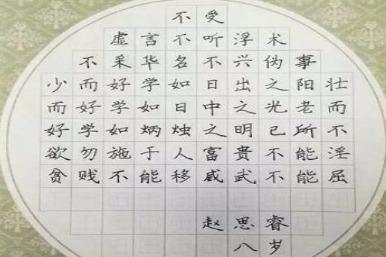 不受
虚言不听浮术
不采华名不兴伪事
少而好学如日出之阳壮
而好学如日中之光老而
好学如炳烛之明己所不
欲勿施于人富贵不能淫
贫贱不能移威武不能屈
赵思睿
八岁